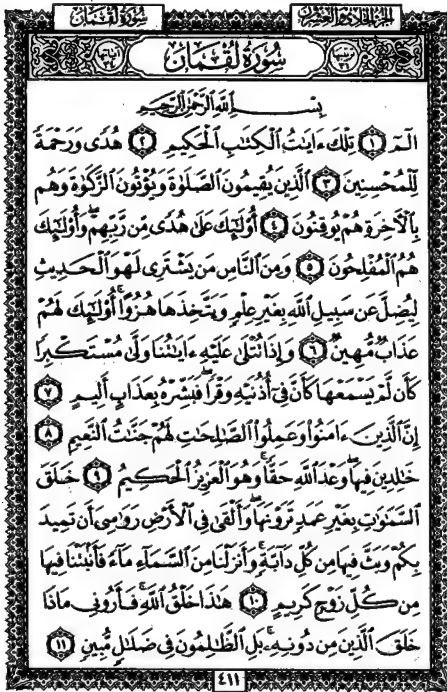 سُورَةُ لُقْمَان الجزء الحادي والعشرون
سُورَةُ لُقْمَانَ
بِسْمِ اللَّهِ الرَّحْمَٰنِ الرَّحِيمِ
الٓمٓ ١ تِلْكَ ءَايَٰتُ ٱلْكِتَٰبِ ٱلْحَكِيمِ ٢ هُدًى وَرَحْمَةً
لِّلْمُحْسِنِينَ ٣ ٱلَّذِينَ يُقِيمُونَ ٱلصَّلَوٰةَ وَيُؤْتُونَ ٱلزَّكَوٰةَ وَهُم
بِٱلْءَاخِرَةِ هُمْ يُوقِنُونَ ٤ أُو۟لَٰٓئِكَ عَلَىٰ هُدًى مِّن رَّبِّهِمْ ۖ وَأُو۟لَٰٓئِكَ
هُمُ ٱلْمُفْلِحُونَ ٥ وَمِنَ ٱلنَّاسِ مَن يَشْتَرِى لَهْوَ ٱلْحَدِيثِ
لِيُضِلَّ عَن سَبِيلِ ٱللَّهِ بِغَيْرِ عِلْمٍ وَيَتَّخِذَهَا هُزُوًا ۚ أُو۟لَٰٓئِكَ لَهُمْ
عَذَابٌ مُّهِينٌ ٦ وَإِذَا تُتْلَىٰ عَلَيْهِ ءَايَٰتُنَا وَلَّىٰ مُسْتَكْبِرًا
كَأَن لَّمْ يَسْمَعْهَا كَأَنَّ فِىٓ أُذُنَيْهِ وَقْرًا ۖ فَبَشِّرْهُ بِعَذَابٍ أَلِيمٍ ٧
إِنَّ ٱلَّذِينَ ءَامَنُوا۟ وَعَمِلُوا۟ ٱلصَّٰلِحَٰتِ لَهُمْ جَنَّٰتُ ٱلنَّعِيمِ ٨
خَٰلِدِينَ فِيهَا ۖ وَعْدَ ٱللَّهِ حَقًّا ۚ وَهُوَ ٱلْعَزِيزُ ٱلْحَكِيمُ ٩ خَلَقَ
ٱلسَّمَٰوَٰتِ بِغَيْرِ عَمَدٍ تَرَوْنَهَا ۖ وَأَلْقَىٰ فِى ٱلْأَرْضِ رَوَٰسِىَ أَن تَمِيدَ
بِكُمْ وَبَثَّ فِيهَا مِن كُلِّ دَآبَّةٍ ۚ وَأَنزَلْنَا مِنَ ٱلسَّمَآءِ مَآءً فَأَنۢبَتْنَا فِيهَا
مِن كُلِّ زَوْجٍ كَرِيمٍ ١٠ هَٰذَا خَلْقُ ٱللَّهِ فَأَرُونِى مَاذَا
خَلَقَ ٱلَّذِينَ مِن دُونِهِۦ ۚ بَلِ ٱلظَّٰلِمُونَ فِى ضَلَٰلٍ مُّبِينٍ ١١
٤١١